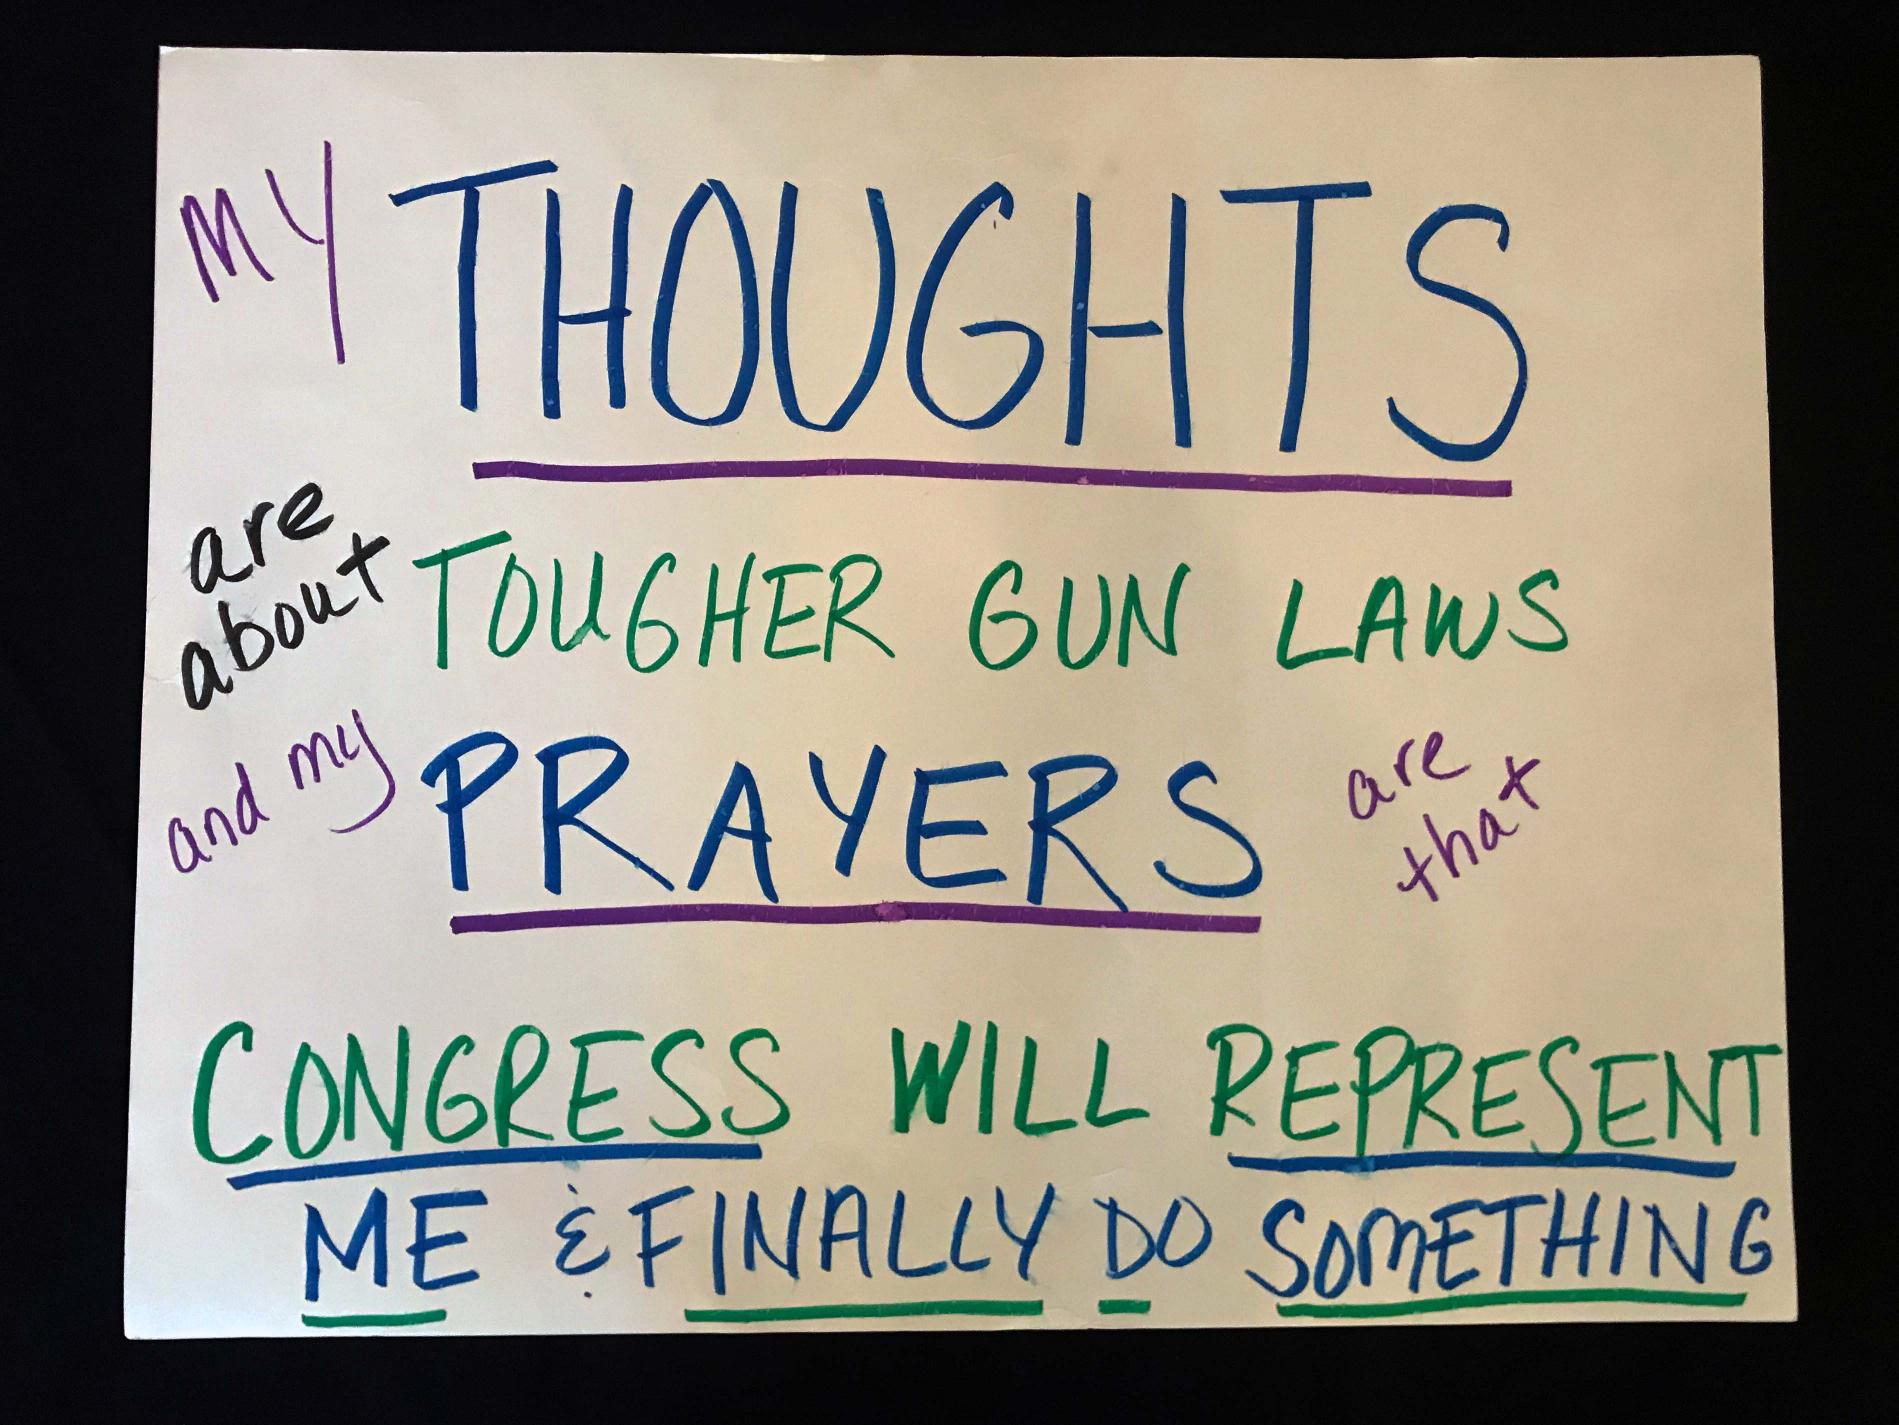 MY THOUGHTS
are
about
TOUGHER GUN LAWS
and my PRAYERS are
that
CONGRESS WILL REPRESENT
ME & FINALLY DO SOMETHING